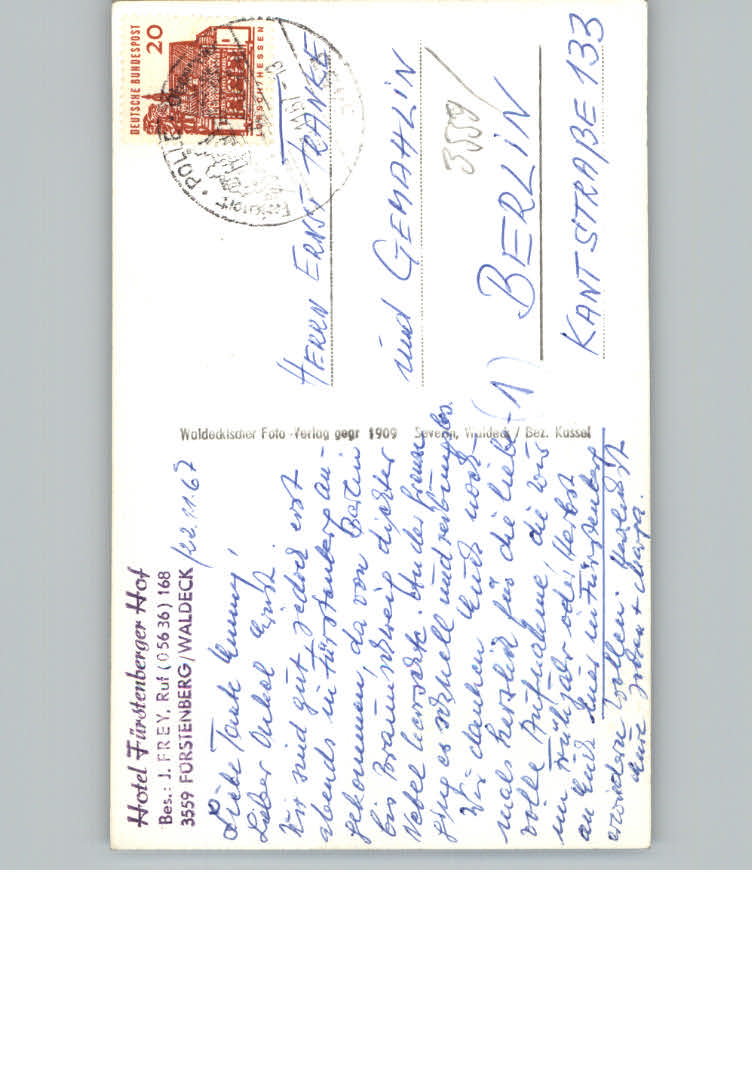 Hotel Fürstenberger Hof
Bes.: J. FREY, Ruf (05636) 168
3559 FÜRSTENBERG/WALDECK /22.11.67
Liebe Tante Emmy,
Lieber Onkel Ernst.
Wir sind gut, jedoch erst
abends in Fürstenberg an-
gekommen, da von Berlin
bis Braunschweig dichter
Nebel herrschte. An der Grenze
ging es schnell und reibungslos.
Wir danken Euch noch-
mals herzlich für die liebe-
volle Aufnahme, die wir
im Frühjahr oder Herbst
an Euch hier in Fürstenberg
erwidern wollen. Herzlichst
Eure
Waldeckischer Foto-Verlag gegr 1909 Severin, Waldeck / Bez. Kassel
DEUTSCHE BUNDESPOST
20
LORSCH/HESSEN
HERRN ERNST TRANKE
und GEMAHLIN
3559
(1) BERLIN
KANTSTRAßE 133